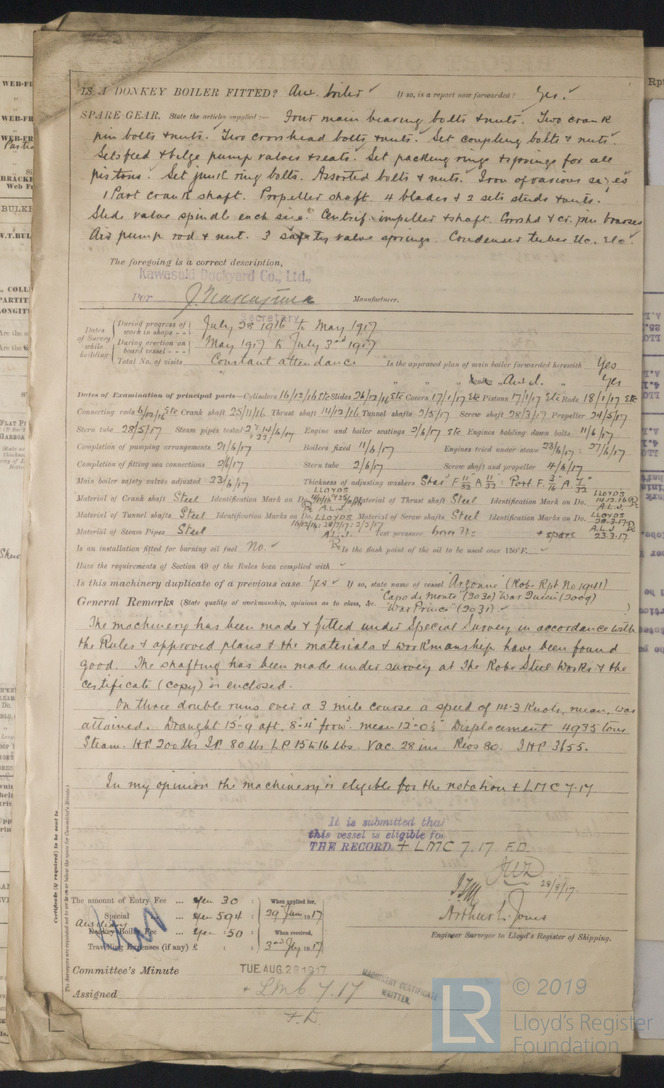 IS A DONKEY BOILER FITTED? Aux. boiler ✓ If so, is a report now forwarded? Yes ✓
SPARE GEAR. State the articles supplied:— Four main bearing bolts & nuts. Two crank
pin bolts & nuts. Two crosshead bolts & nuts. Set coupling bolts & nuts.
Sets feed & bilge pump valves & seats. Set packing rings & springs for all
pistons. Set junk ring bolts. Assorted bolts & nuts. Iron of various sizes
1 Part crank shaft. Propeller shaft. 4 blades & 2 sets studs & nuts.
Slide valve spindle each size. Centrif. impeller & shaft. Crosshd & cr. pin brasses
Air pump rod & nut. 3 safety valve springs. Condenser tubes &c. &c.
The foregoing is a correct description,
Kawasaki Dockyard Co., Ltd.,
Manufacturer.
Secretary
Dates of Survey while building
During progress of work in shops - - July 28 1916 to May 1917
During erection on board vessel - - - May 1917 to July 3rd 1917
Total No. of visits Constant attendance Is the approved plan of main boiler forwarded herewith Yes
" " " Aux. d. " Yes
Dates of Examination of principal parts—Cylinders 16/12/16 etc Slides 26/12/16 etc Covers 17/1/17 etc Pistons 17/1/17 etc Rods 18/1/17 etc
Connecting rods 6/12/16 etc Crank shaft 25/11/16 Thrust shaft 14/12/16 Tunnel shafts 2/5/17 Screw shaft 28/3/17 Propeller 24/5/17
Stern tube 28/5/17 Steam pipes tested Engine and boiler seatings 2/6/17 etc Engines holding down bolts 11/6/17
Completion of pumping arrangements 21/6/17 Boilers fixed 11/6/17 Engines tried under steam 23/6/17: 27/6/17
Completion of fitting sea connections 2/6/17 Stern tube 2/6/17 Screw shaft and propeller 4/6/17
Main boiler safety valves adjusted 23/6/17 Thickness of adjusting washers
Material of Crank shaft Steel Identification Mark on Do. LLOYDS A.L.J. Material of Thrust shaft Steel Identification Mark on Do. LLOYDS 14.12.16 A.L.J.
Material of Tunnel shafts Steel Identification Marks on Do. LLOYDS A.L.J. Material of Screw shafts Steel Identification Marks on Do. LLOYDS 28.3.17 A.L.J.
Material of Steam Pipes Steel Test pressure + spare 23.3.17
Is an installation fitted for burning oil fuel No. ✓ Is the flash point of the oil to be used over 150°F. ✓
Have the requirements of Section 49 of the Rules been complied with ✓
Is this machinery duplicate of a previous case Yes ✓ If so, state name of vessel "Argonne" (Kobe Rpt No 1941)
"Capo di Monte" (2030) "War Queen" (2009)
General Remarks (State quality of workmanship, opinions as to class, &c. "War Prince" (2031) ✓
The machinery has been made & fitted under Special Survey in accordance with
the Rules & approved plans & the materials & workmanship have been found
good. The shafting has been made under survey at the Kobe Steel Works & the
certificate (copy) is enclosed.
On three double runs over a 3 mile course a speed of 14.3 Knots, mean, was
attained. Draught 15'-9" aft. 8'-4" forw. mean 12'-0½" Displacement 4935 tons
Steam. HP 200 lbs IP 80 lbs LP 15 & 16 lbs. Vac. 28 ins. Revs 80. IHP 3655.
In my opinion the machinery is eligible for the notation + LMC 7.17
It is submitted that
this vessel is eligible for
THE RECORD + LMC 7.17 F.D.
28/8/17
The amount of Entry Fee ... Yen 30
When applied for,
Special ... Yen 594
29 June 1917
Auxiliary
Donkey Boiler Fee ... Yen 50
When received,
Travelling Expenses (if any) £
3rd July 1917
Arthur L. Jones
Engineer Surveyor to Lloyd's Register of Shipping.
Committee's Minute TUE. AUG. 28 1917
Assigned + LMC 7.17
F.D.
MACHINERY CERTIFICATE
WRITTEN.
Certificate (if required) to be sent to
LR
© 2019
Lloyd's Register
Foundation